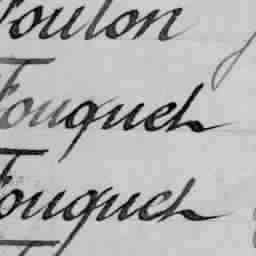 Foulon
Fouquet
Fouquet